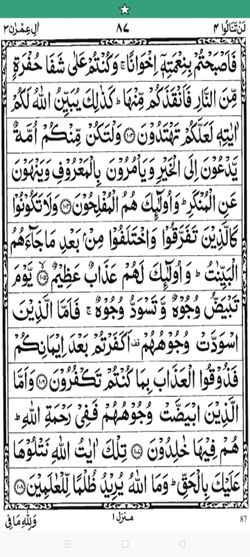 لن تنالوا ۴ ۸۷ ال عمرٰن ۳
فَاَصْبَحْتُمْ بِنِعْمَتِهٖۤ اِخْوَانًا ۚ وَكُنْتُمْ عَلٰى شَفَا حُفْرَةٍ
مِّنَ النَّارِ فَاَنْقَذَكُمْ مِّنْهَا ؕ كَذٰلِكَ يُبَيِّنُ اللّٰهُ لَكُمْ
اٰيٰتِهٖ لَعَلَّكُمْ تَهْتَدُوْنَ ﴿۱۰۳﴾ وَلْتَكُنْ مِّنْكُمْ اُمَّةٌ
يَّدْعُوْنَ اِلَى الْخَيْرِ وَيَاْمُرُوْنَ بِالْمَعْرُوْفِ وَيَنْهَوْنَ
عَنِ الْمُنْكَرِ ؕ وَاُولٰٓئِكَ هُمُ الْمُفْلِحُوْنَ ﴿۱۰۴﴾ وَلَا تَكُوْنُوْا
كَالَّذِيْنَ تَفَرَّقُوْا وَاخْتَلَفُوْا مِنْۢ بَعْدِ مَا جَآءَهُمُ
الْبَيِّنٰتُ ؕ وَاُولٰٓئِكَ لَهُمْ عَذَابٌ عَظِيْمٌ ﴿۱۰۵﴾ يَّوْمَ
تَبْيَضُّ وُجُوْهٌ وَّتَسْوَدُّ وُجُوْهٌ ۚ فَاَمَّا الَّذِيْنَ
اسْوَدَّتْ وُجُوْهُهُمْ اَكَفَرْتُمْ بَعْدَ اِيْمَانِكُمْ
فَذُوْقُوا الْعَذَابَ بِمَا كُنْتُمْ تَكْفُرُوْنَ ﴿۱۰۶﴾ وَاَمَّا
الَّذِيْنَ ابْيَضَّتْ وُجُوْهُهُمْ فَفِيْ رَحْمَةِ اللّٰهِ ؕ
هُمْ فِيْهَا خٰلِدُوْنَ ﴿۱۰۷﴾ تِلْكَ اٰيٰتُ اللّٰهِ نَتْلُوْهَا
عَلَيْكَ بِالْحَقِّ ؕ وَمَا اللّٰهُ يُرِيْدُ ظُلْمًا لِّلْعٰلَمِيْنَ ﴿۱۰۸﴾
87 منزل ۱ وَلِلّٰهِ مَا فِي